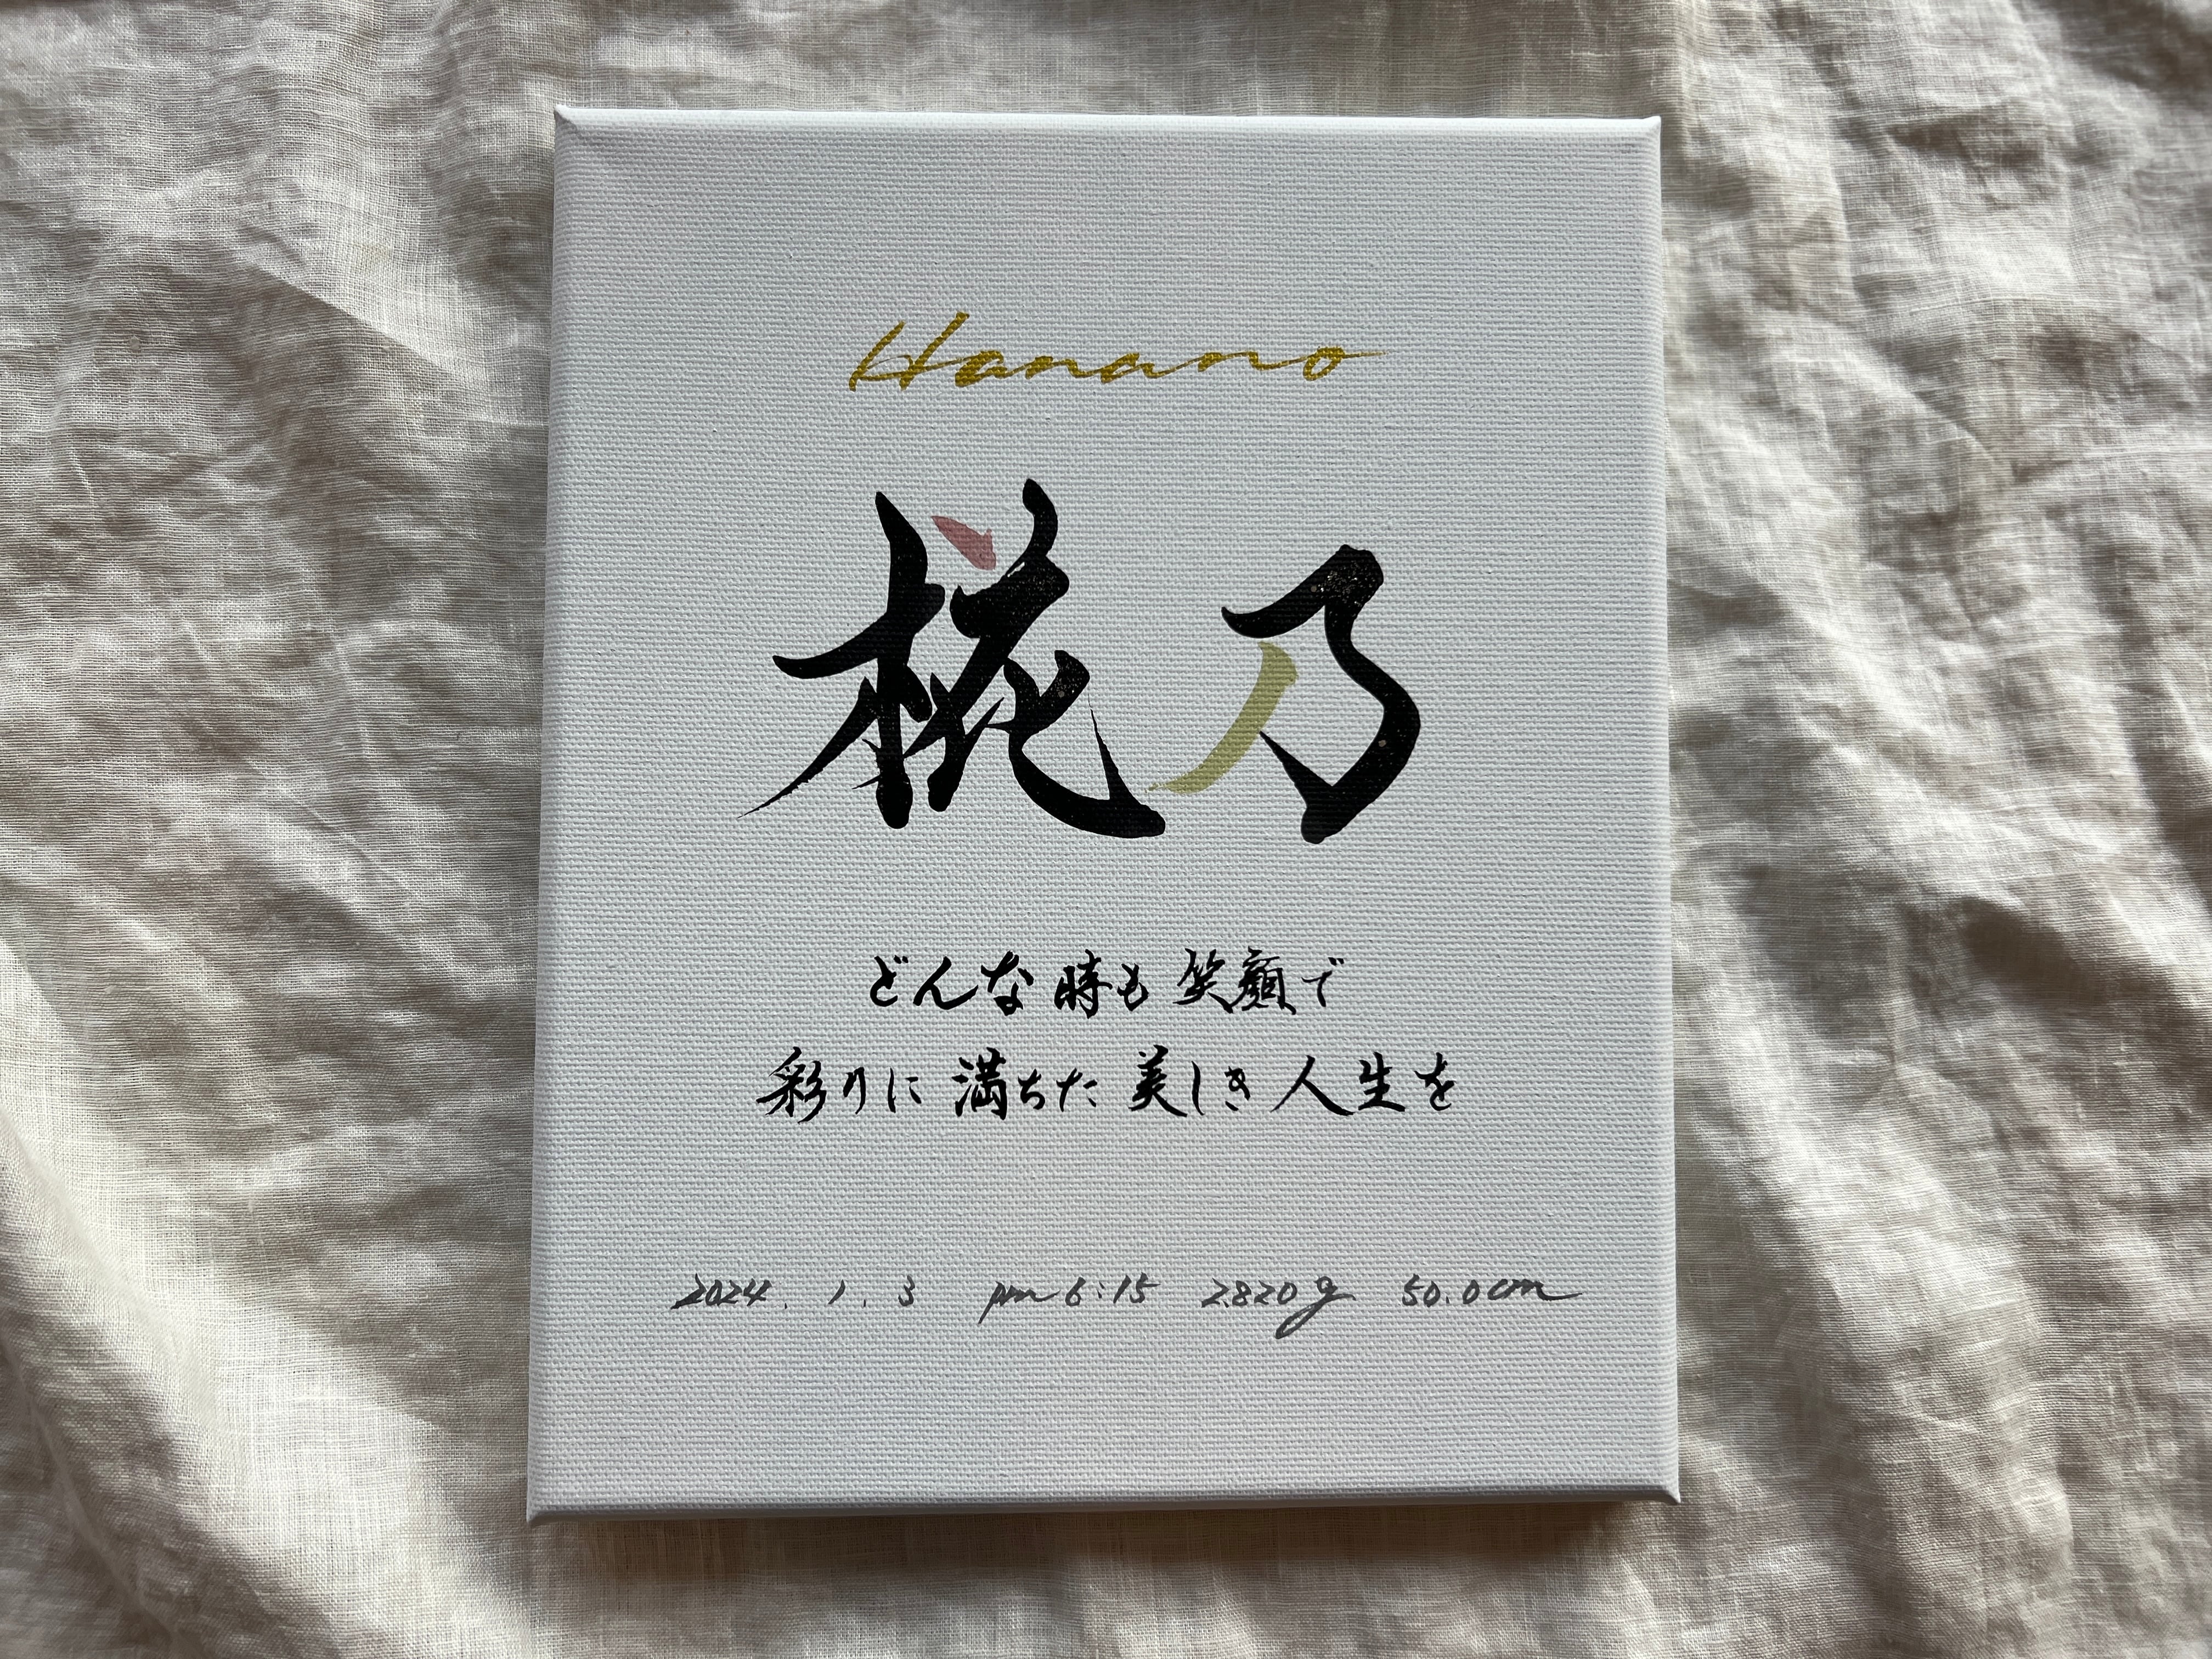 Hanano
椛乃
どんな時も笑顔で
彩りに満ちた美しき人生を
2024. 1. 3 pm 6:15 2820g 50.0cm